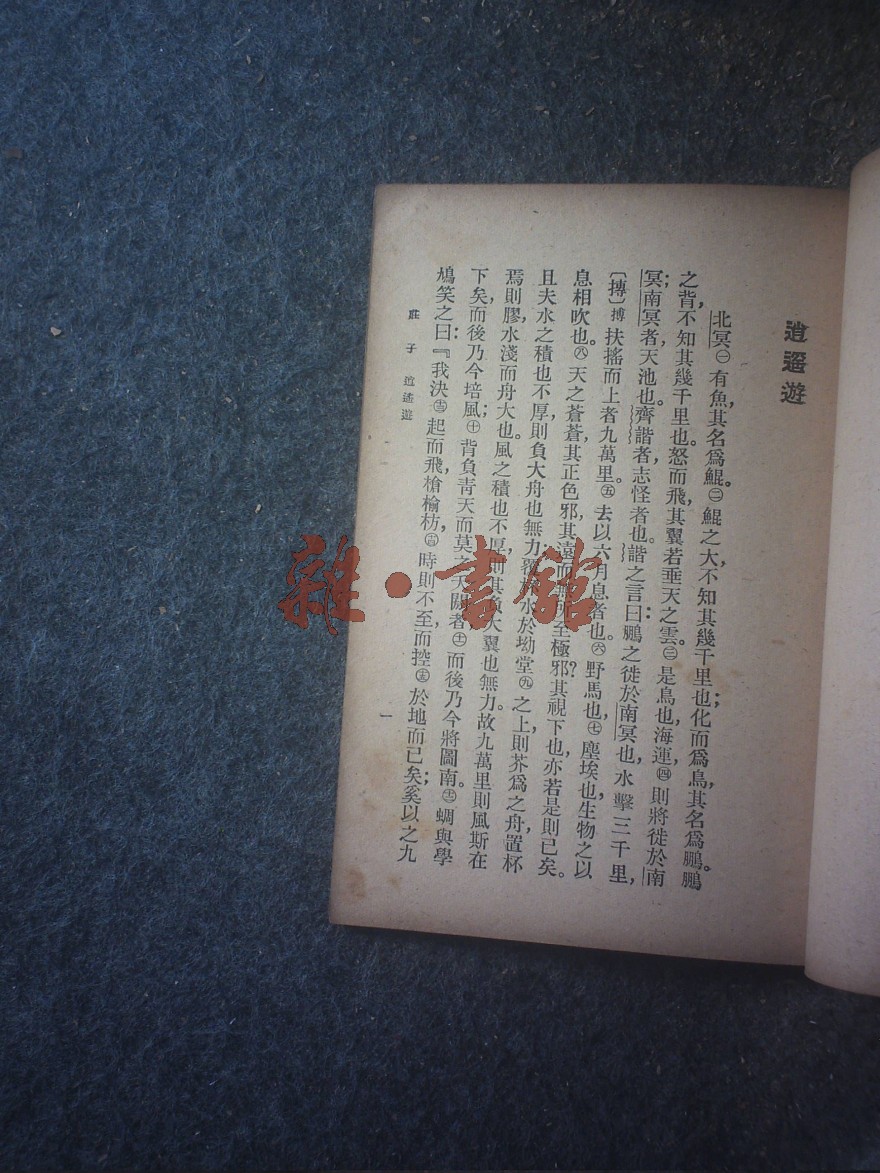 逍遥遊
北冥㊀有魚，其名爲鯤。㊁鯤之大，不知其幾千里也；化而爲鳥，其名爲鵬。鵬
之背，不知其幾千里也。怒而飛，其翼若垂天之雲。㊂是鳥也，海運㊃則將徙於南
冥；南冥者，天池也。齊諧者，志怪者也。諧之言曰：鵬之徙於南冥也，水擊三千里，
〔摶〕搏扶搖而上者九萬里㊄去以六月息者也。㊅野馬也，㊆塵埃也，生物之以
息相吹也。㊇天之蒼蒼，其正色邪，其遠而 至極邪？其視下也，亦若是則已矣。
且夫水之積也不厚，則負大舟也無力，覆 水於坳堂㊈之上，則芥爲之舟，置杯
焉則膠，水淺而舟大也。風之積也不厚，則其負大翼也無力。故九萬里則風斯在
下矣，而後乃今培風；㊉背負青天而莫之夭閼者，⑪而後乃今將圖南。⑫蜩與學
鳩笑之曰：『我決⑬起而飛，槍榆枋，⑭時則不至，而控⑮於地而已矣；奚以之九
莊子 逍遙遊
一
雜·書館